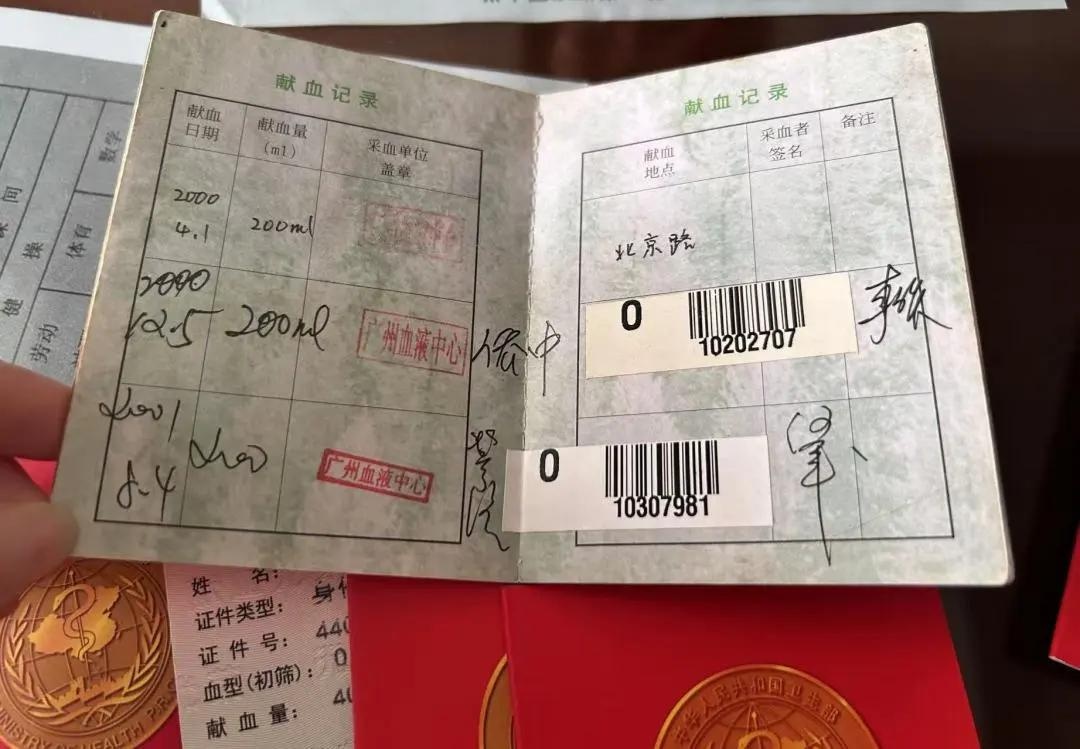 献血记录
献血日期
献血量(ml)
采血单位盖章
2000
4.1
200ml
2000
12.5
200ml
广州血液中心
2001
8.4
200
广州血液中心
献血记录
献血地点
采血者签名
备注
北京路
O
10202707
O
10307981
数学
体育
劳动
健
操
间
姓 名:
证件类型: 身
证件号: 440
血型(初筛): O
献血量: 40
MINISTRY OF HEALTH P.R.
中华人民共和国卫生部